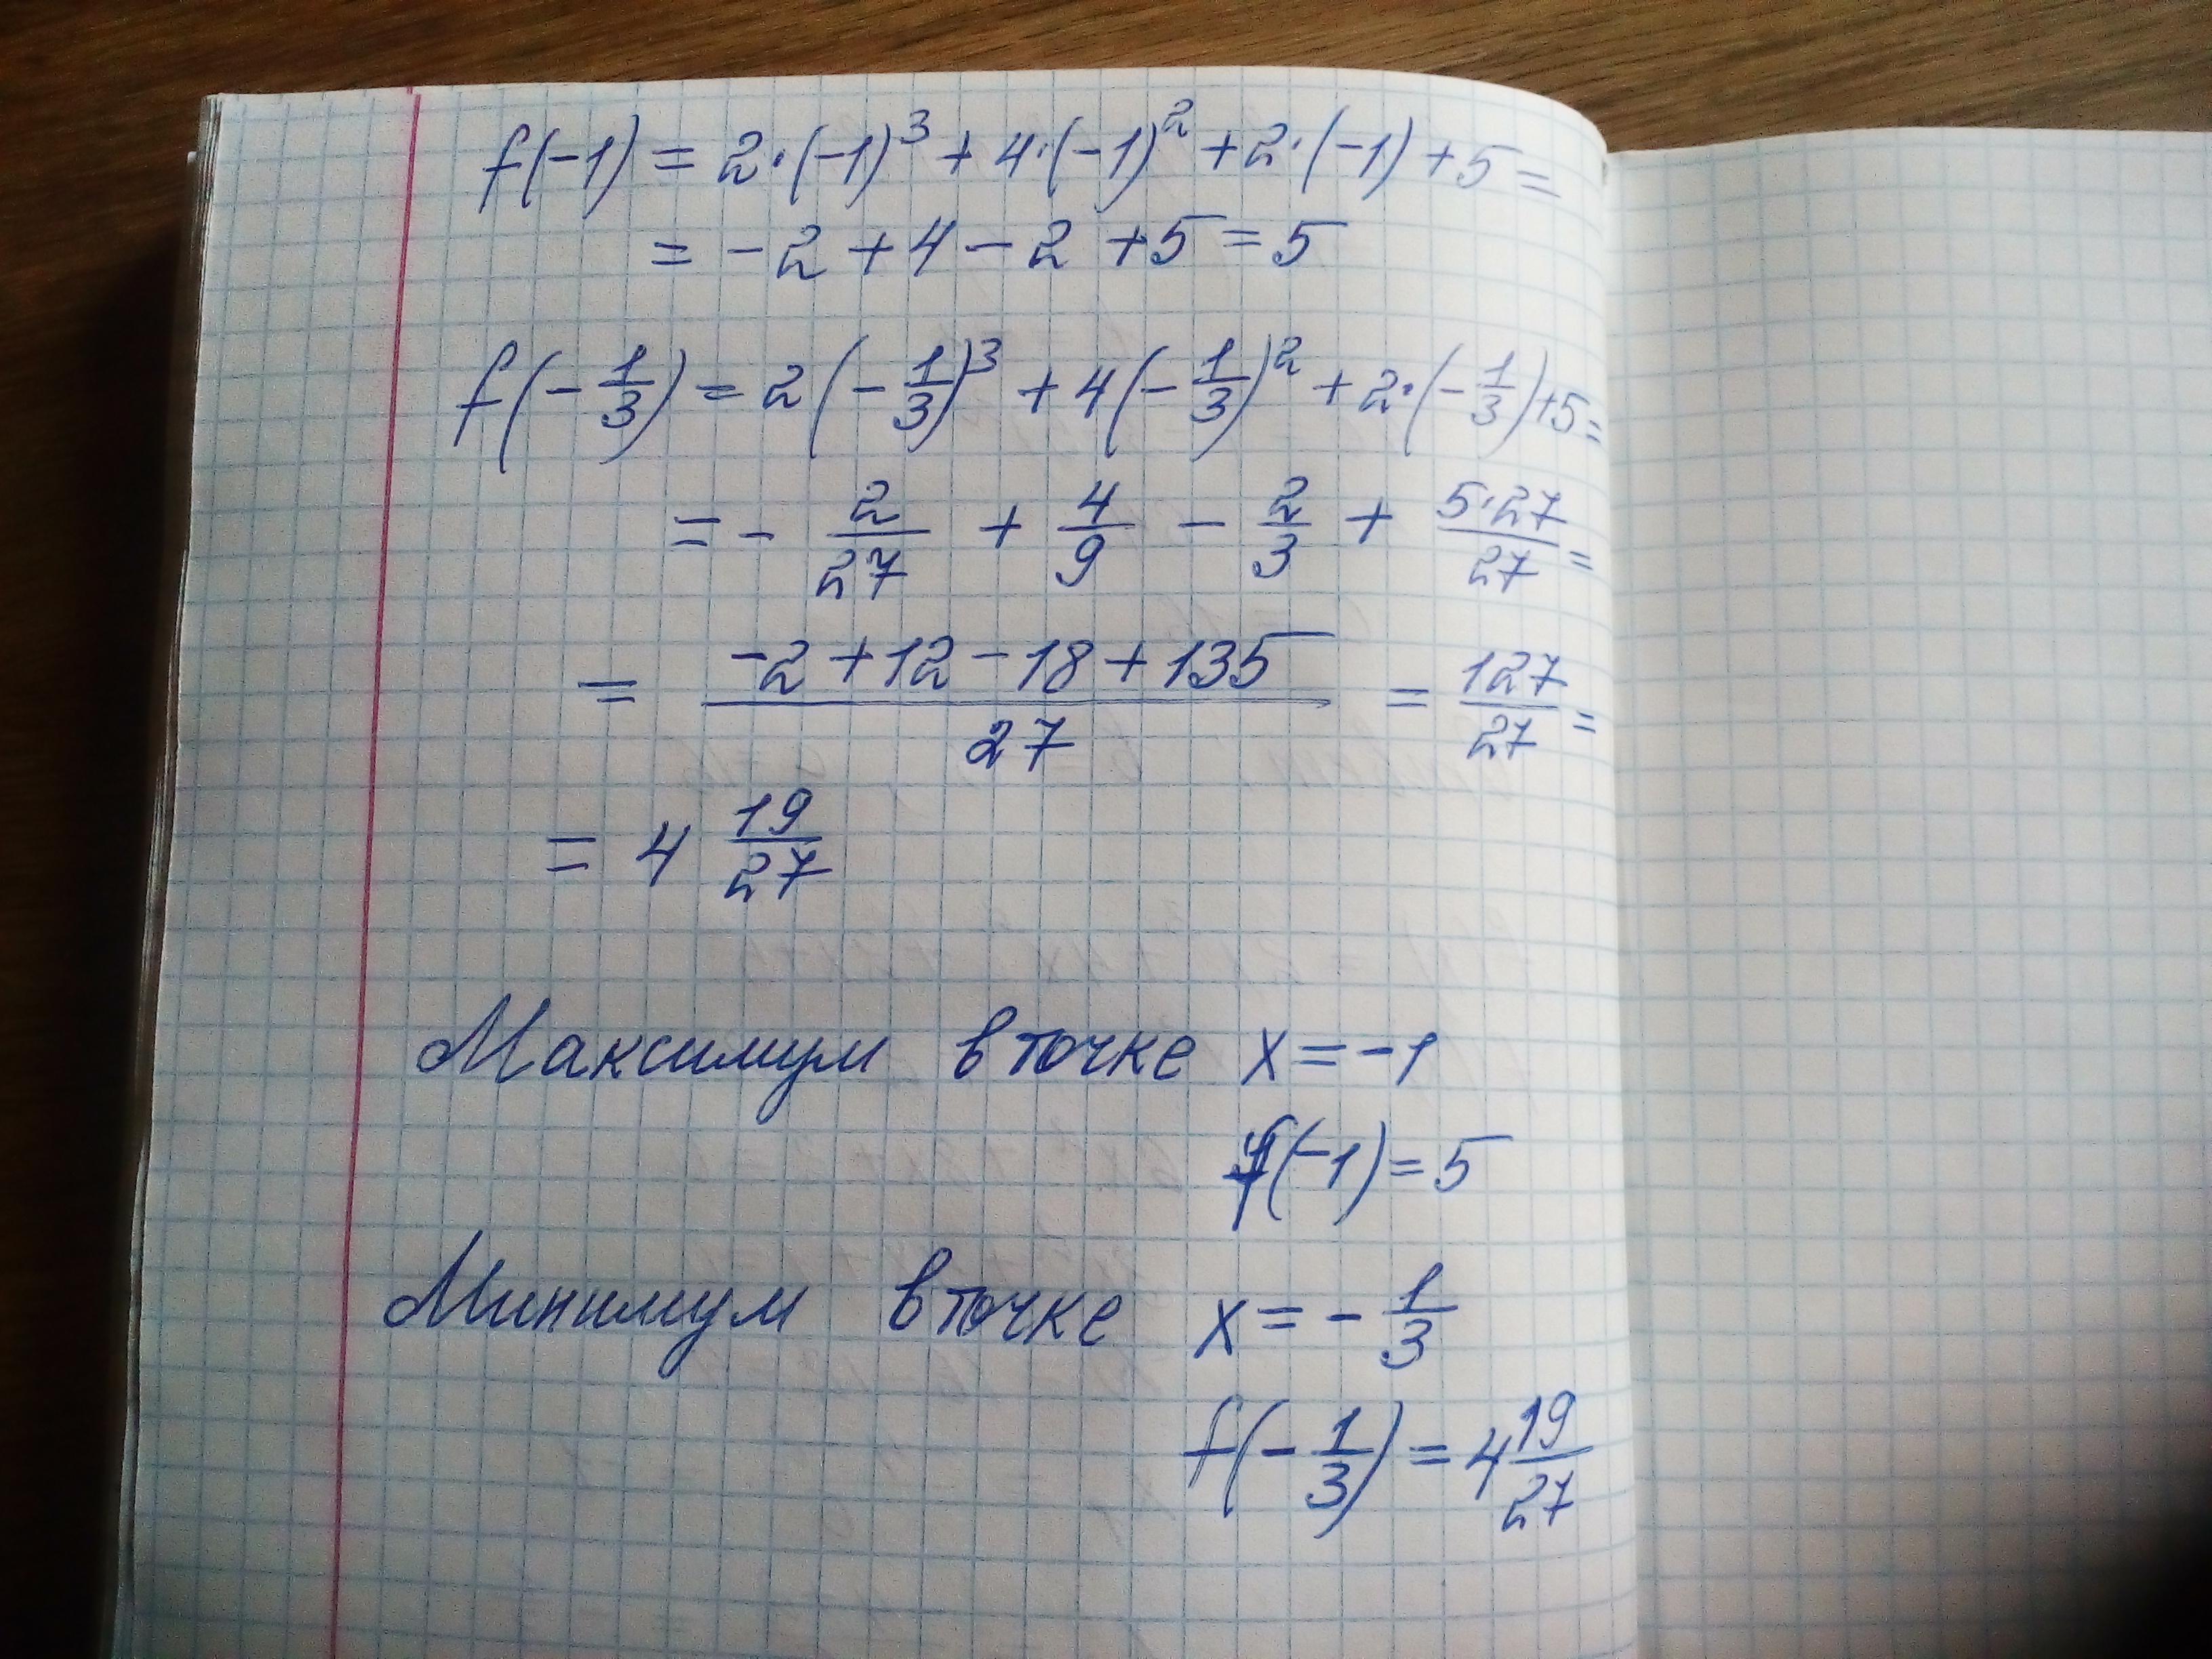 f(-1) = 2·(-1)³ + 4·(-1)² + 2·(-1) + 5 =
= -2 + 4 - 2 + 5 = 5
f(-1/3) = 2(-1/3)³ + 4(-1/3)² + 2·(-1/3) + 5 =
= - 2/27 + 4/9 - 2/3 + 5·27/27 =
= (-2 + 12 - 18 + 135)/27 = 127/27 =
= 4 19/27
Максимум в точке x = -1
f(-1) = 5
Минимум в точке x = - 1/3
f(-1/3) = 4 19/27